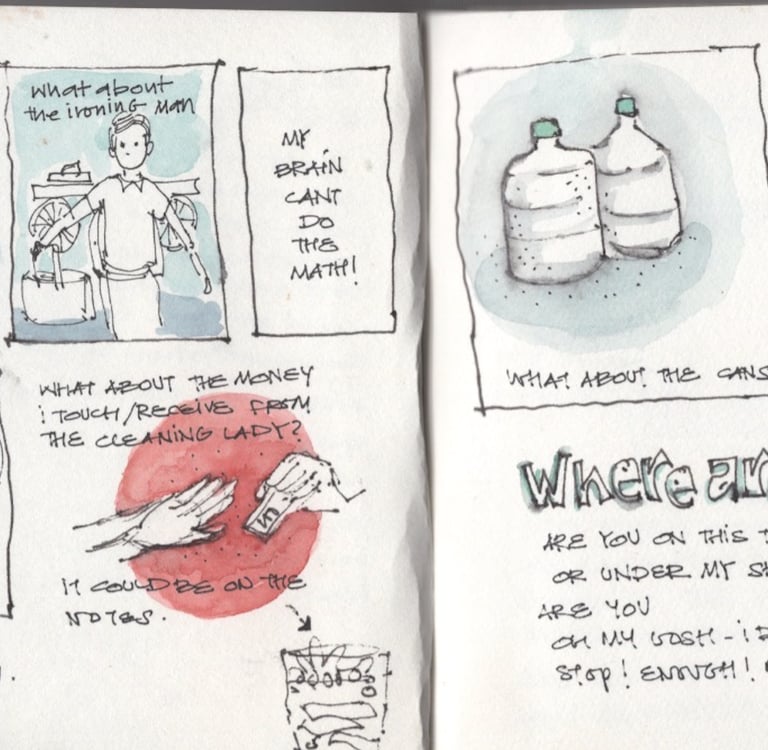 what about
the ironing man
MY
BRAIN
CANT
DO
THE
MATH!
WHAT ABOUT THE MONEY
i TOUCH/RECEIVE FROM
THE CLEANING LADY?
5
IT COULD BE ON THE
NOTES.
WHAT ABOUT THE CANS
Where ar
ARE YOU ON THIS T
OR UNDER MY S
ARE YOU
OH MY GOSH - i D
STOP! ENOUGH!